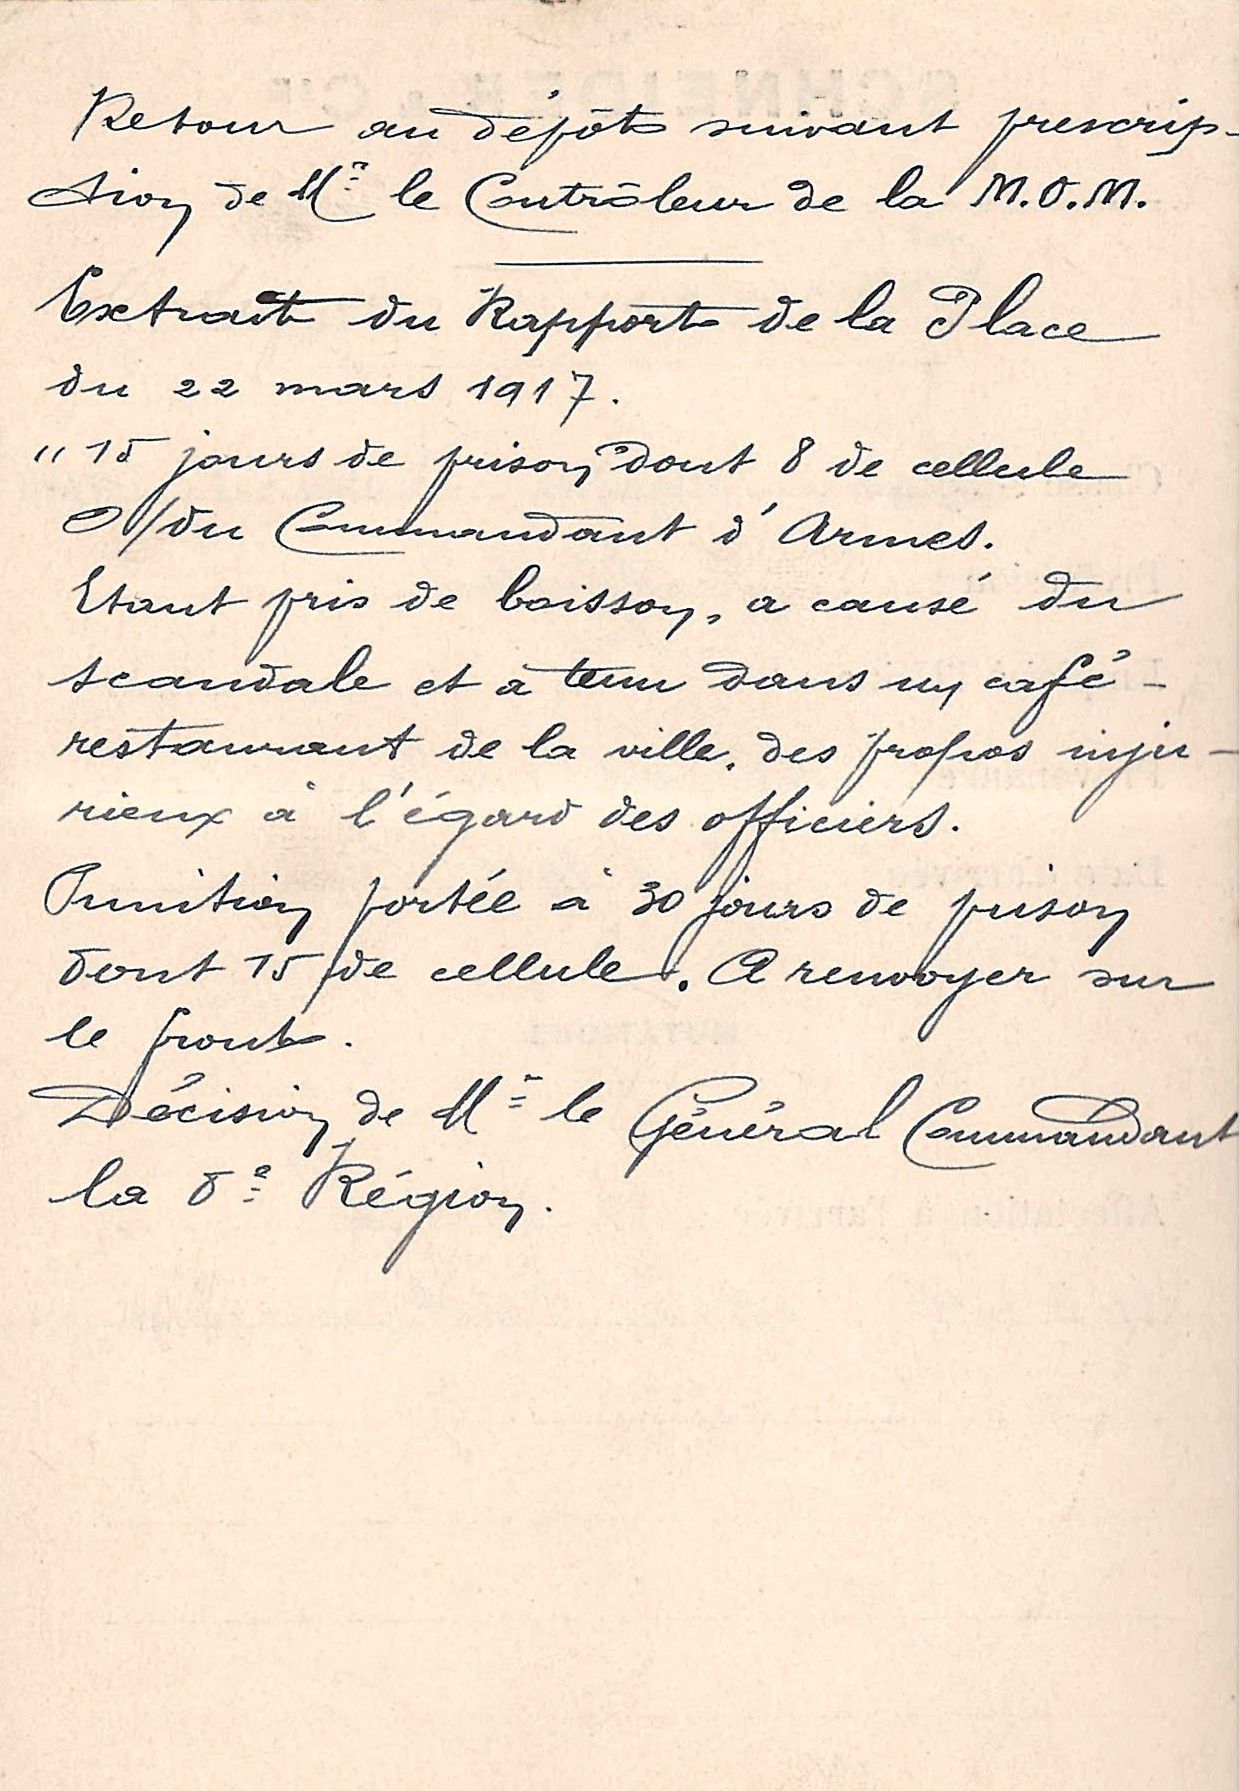 Retour au dépôt suivant prescrip-
tion de Mr le Contrôleur de la M.O.M.
Extrait du Rapport de la Place
du 22 mars 1917.
" 15 jours de prison dont 8 de cellule
O/du Commandant d'Armes.
Etant pris de boisson, a causé du
scandale et a tenu dans un café-
restaurant de la ville, des propos inju-
rieux à l'égard des officiers.
Punition portée à 30 jours de prison
dont 15 de cellule. A renvoyer sur
le front.
Décision de Mr le Général Commandant
la 8e Région.